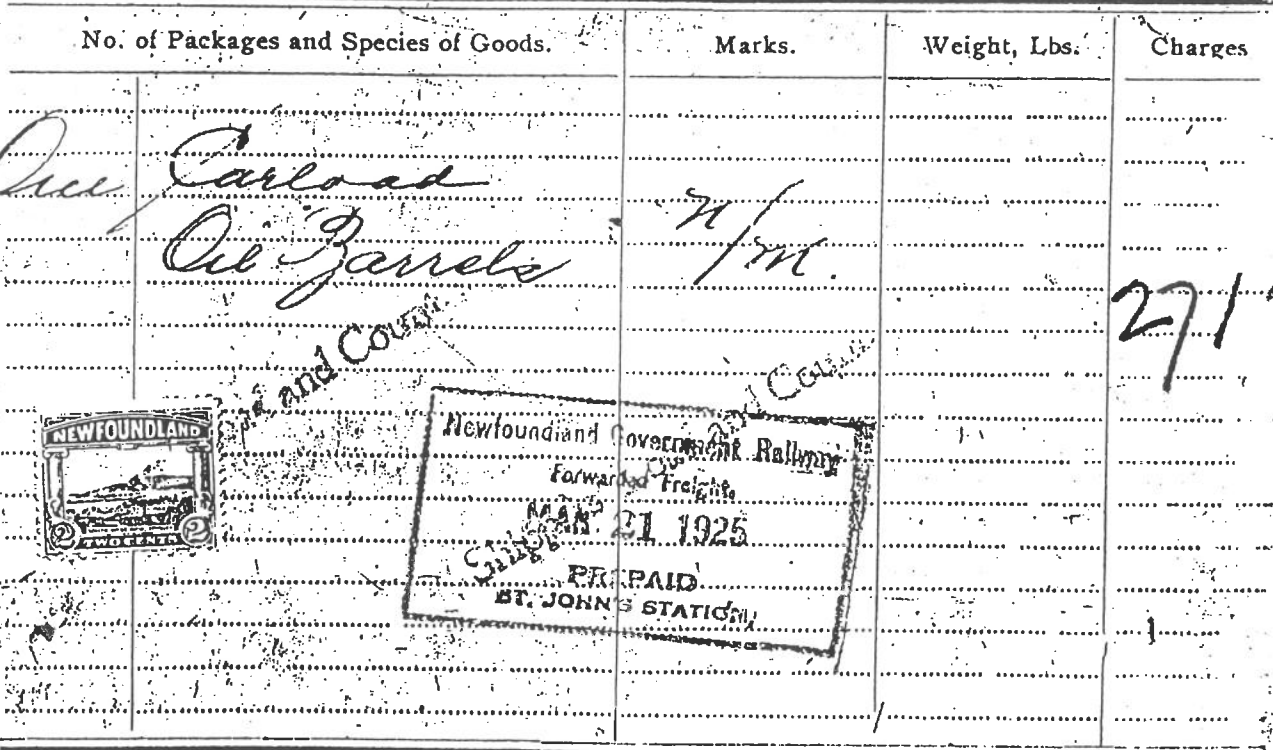 No. of Packages and Species of Goods. Marks. Weight, Lbs. Charges
One Carload
Oil Barrels
N/M.
271
and Count
and Count
NEWFOUNDLAND
2 2
TWO CENTS
Newfoundland Government Railway
Forwarded Freight
MAR. 21 1925
Shippers
PREPAID
ST. JOHN'S STATION